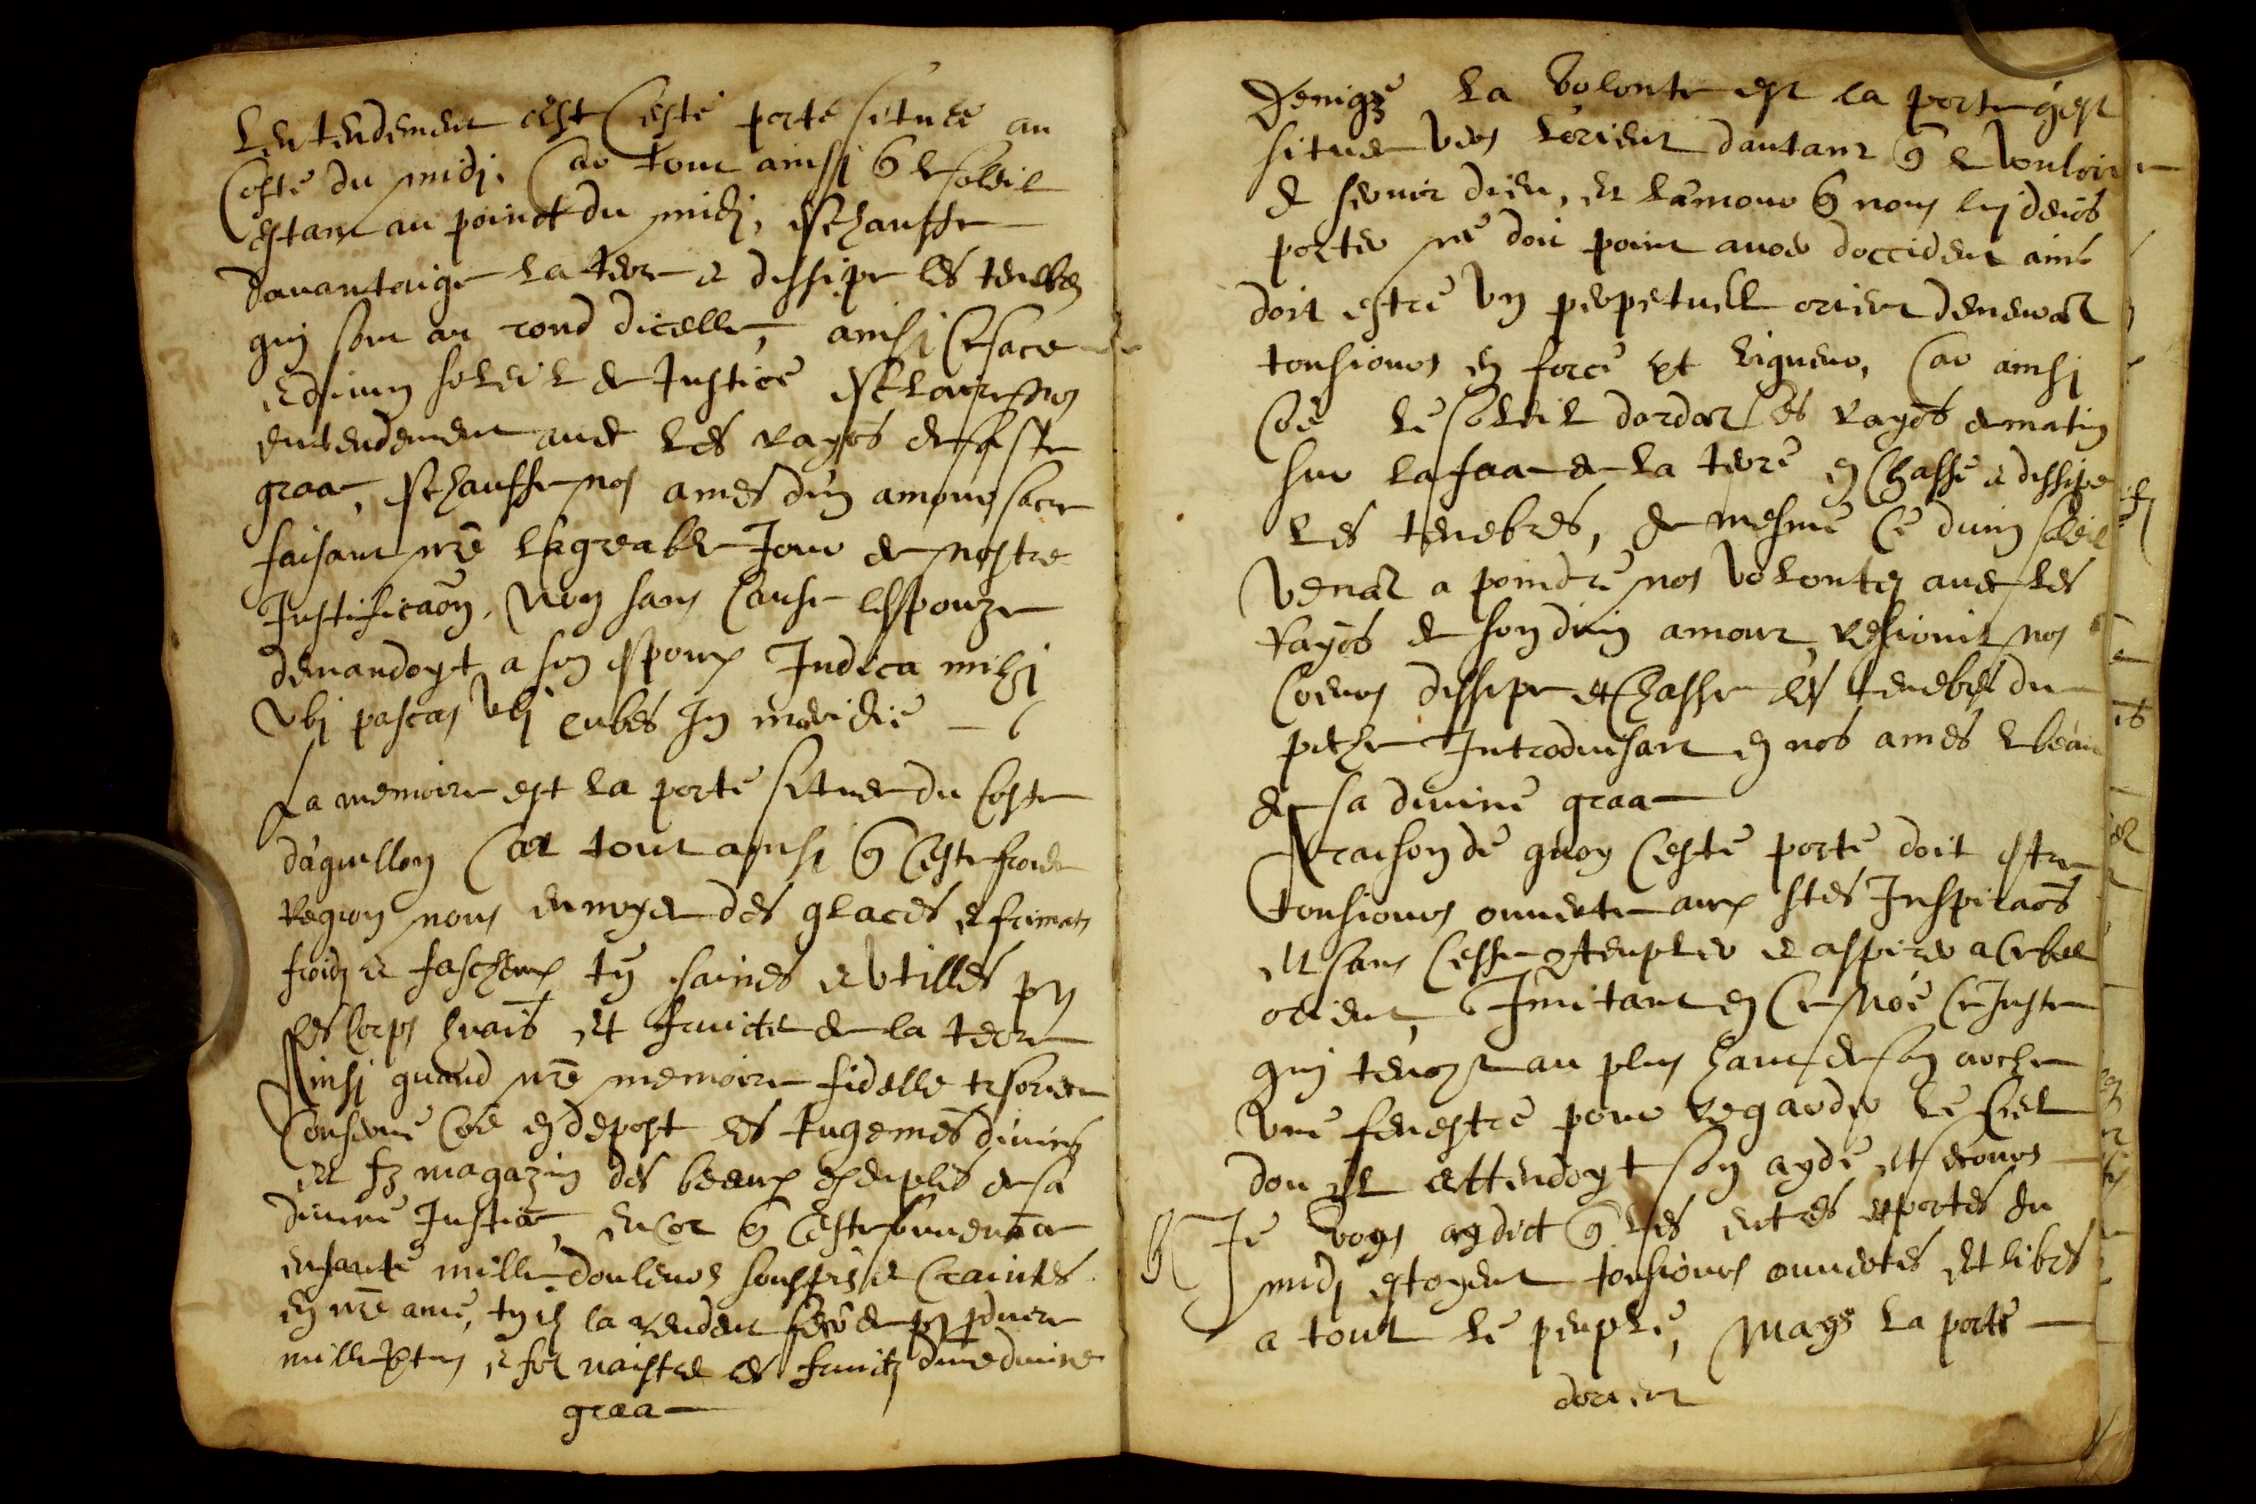 Lentendement est ceste porte situee au
Coste du midj. Car tout ainsj q le soleil
estant au poinct du midj, eschauffe
davantaige la terre et dissipe les tenebres
quj sont au rond dicelle, ainsj ce sacre
et divin soleil de Justice esclaire nos
entendement avec les rayos de sa ste
grace, eschauffe nos ames d'un amour sacre
faisant nre lagreable Jour de nostre
Justificaon. Non sans Cause lespouze
demandoyt a son espoux Indica mihj
Vbj pascas Vbj cubes In meridie
La memoire est la porte situee du Coste
daquillon Car tout ainsj q ceste froide
Region nous envoye des glaces et frimats
froidz et fascheux saines et Vtilles pr
les Corps et fruictz de la terre
Ainsj quand nre memoire fidelle tresoriere
Conserve Coe en depost les Jugemes divins
et magazin des beaux exemples de sa
divine Justice, encor q ceste
enfante mille douleurs souspirs et Craintes
en nre ame, la rendent produire
mille et naistre les fruictz dune divine
grace
La Volonte est la porte q est
situee Vers lorient dautant q le Vouloir
de servir dieu, et lamour q nous luj devos
porter ne doit point avoir doccident ains
doit estre Vn perpetuell orient
tousiours en force et Vigueur, Car ainsj
Coe le soleil dardat ses rayos le matin
sur la face de la terre en Chasse et dissipe
les tenebres, de mesme Ce divin soleil
Venat a poindre nos Volontez avec les
Rayos de son divin amour, resiouit nos
Coeurs dissipe et Chasse les tenebres du
peche Introduisant en nos ames le beau
de sa divine grace
A raison de quoy Ceste porte doit estre
tousiours ouverte aux stes Inspiraos
et sans Cesse contempler et aspirer a Ce bel
orient, Imitant en Ce Noé Ce Juste
quj tenoyt au plus haut de son arche
Vne fenestre pour regarder le Ciel
don Il attendoyt son ayde et secours
Je Vous ay dict q les entres et portes du
midj estoyent tousiours ouvertes et libres
a tout le peuple, Mays la porte
dorient